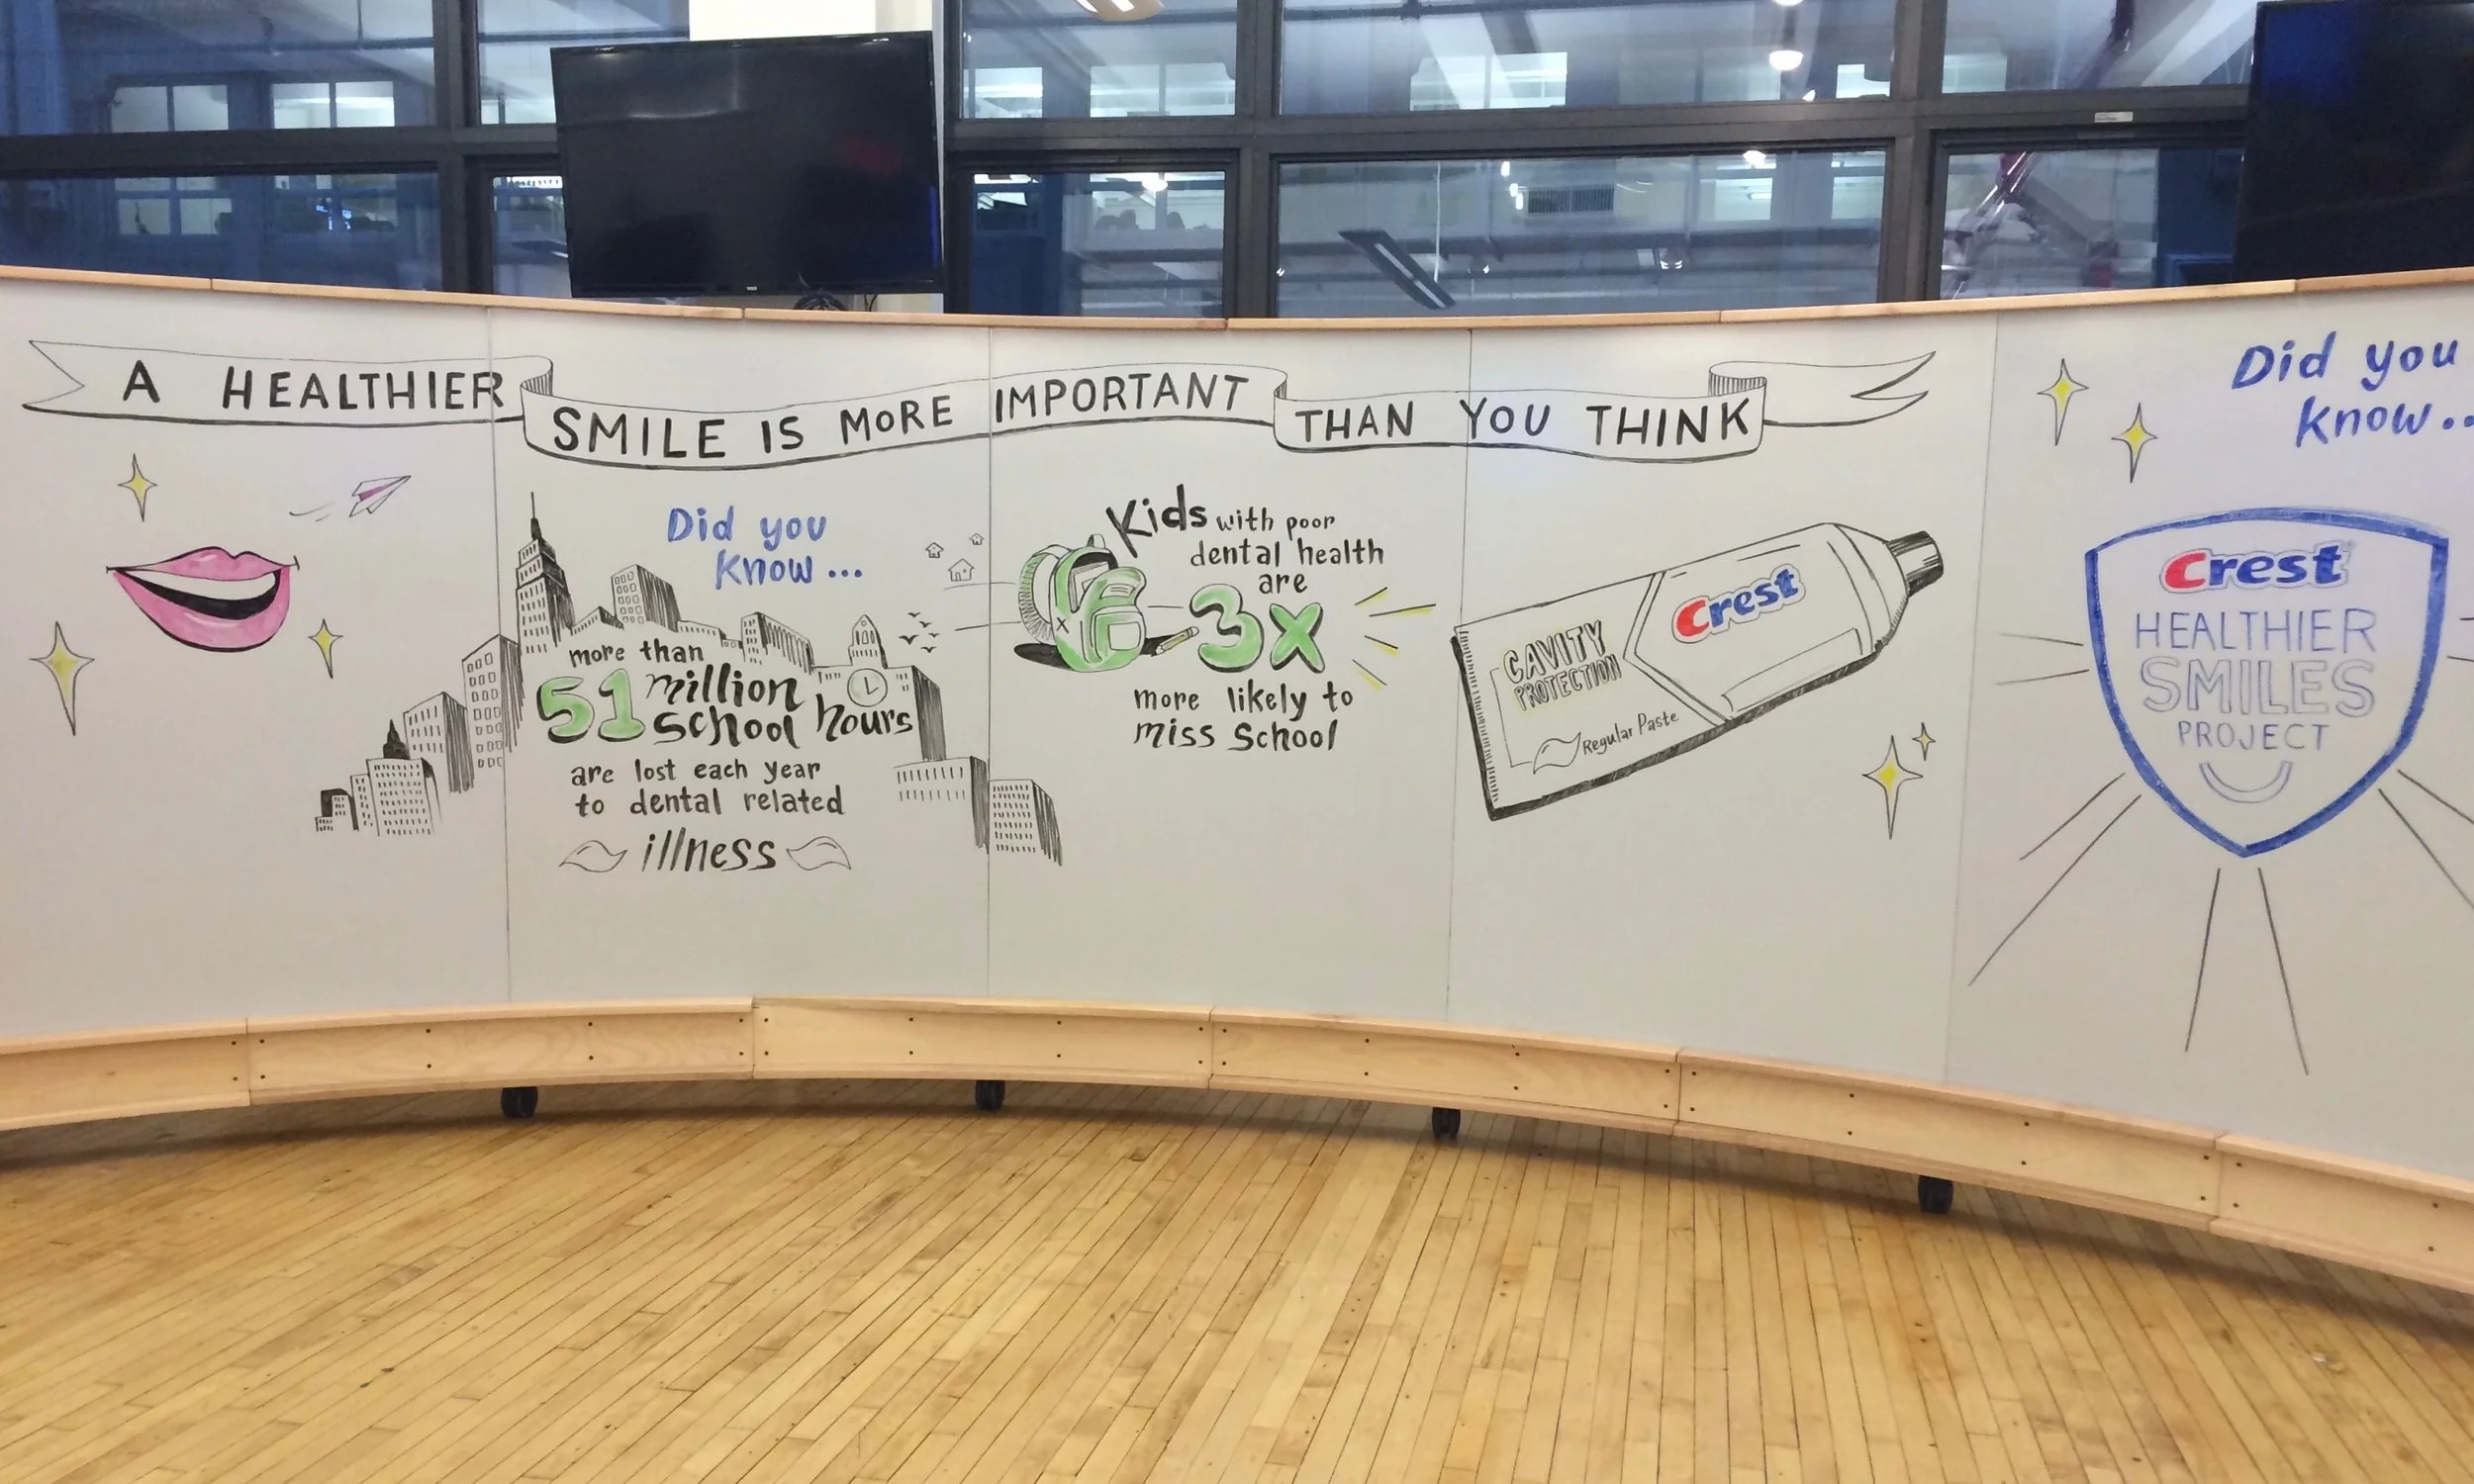 A HEALTHIER SMILE IS MORE IMPORTANT THAN YOU THINK
Did you
know...
more than
51 million
school hours
are lost each year
to dental related
illness
Kids with poor
dental health
are
3x
more likely to
miss school
Crest
CAVITY
PROTECTION
Regular Paste
Did you
know..
Crest
HEALTHIER
SMILES
PROJECT